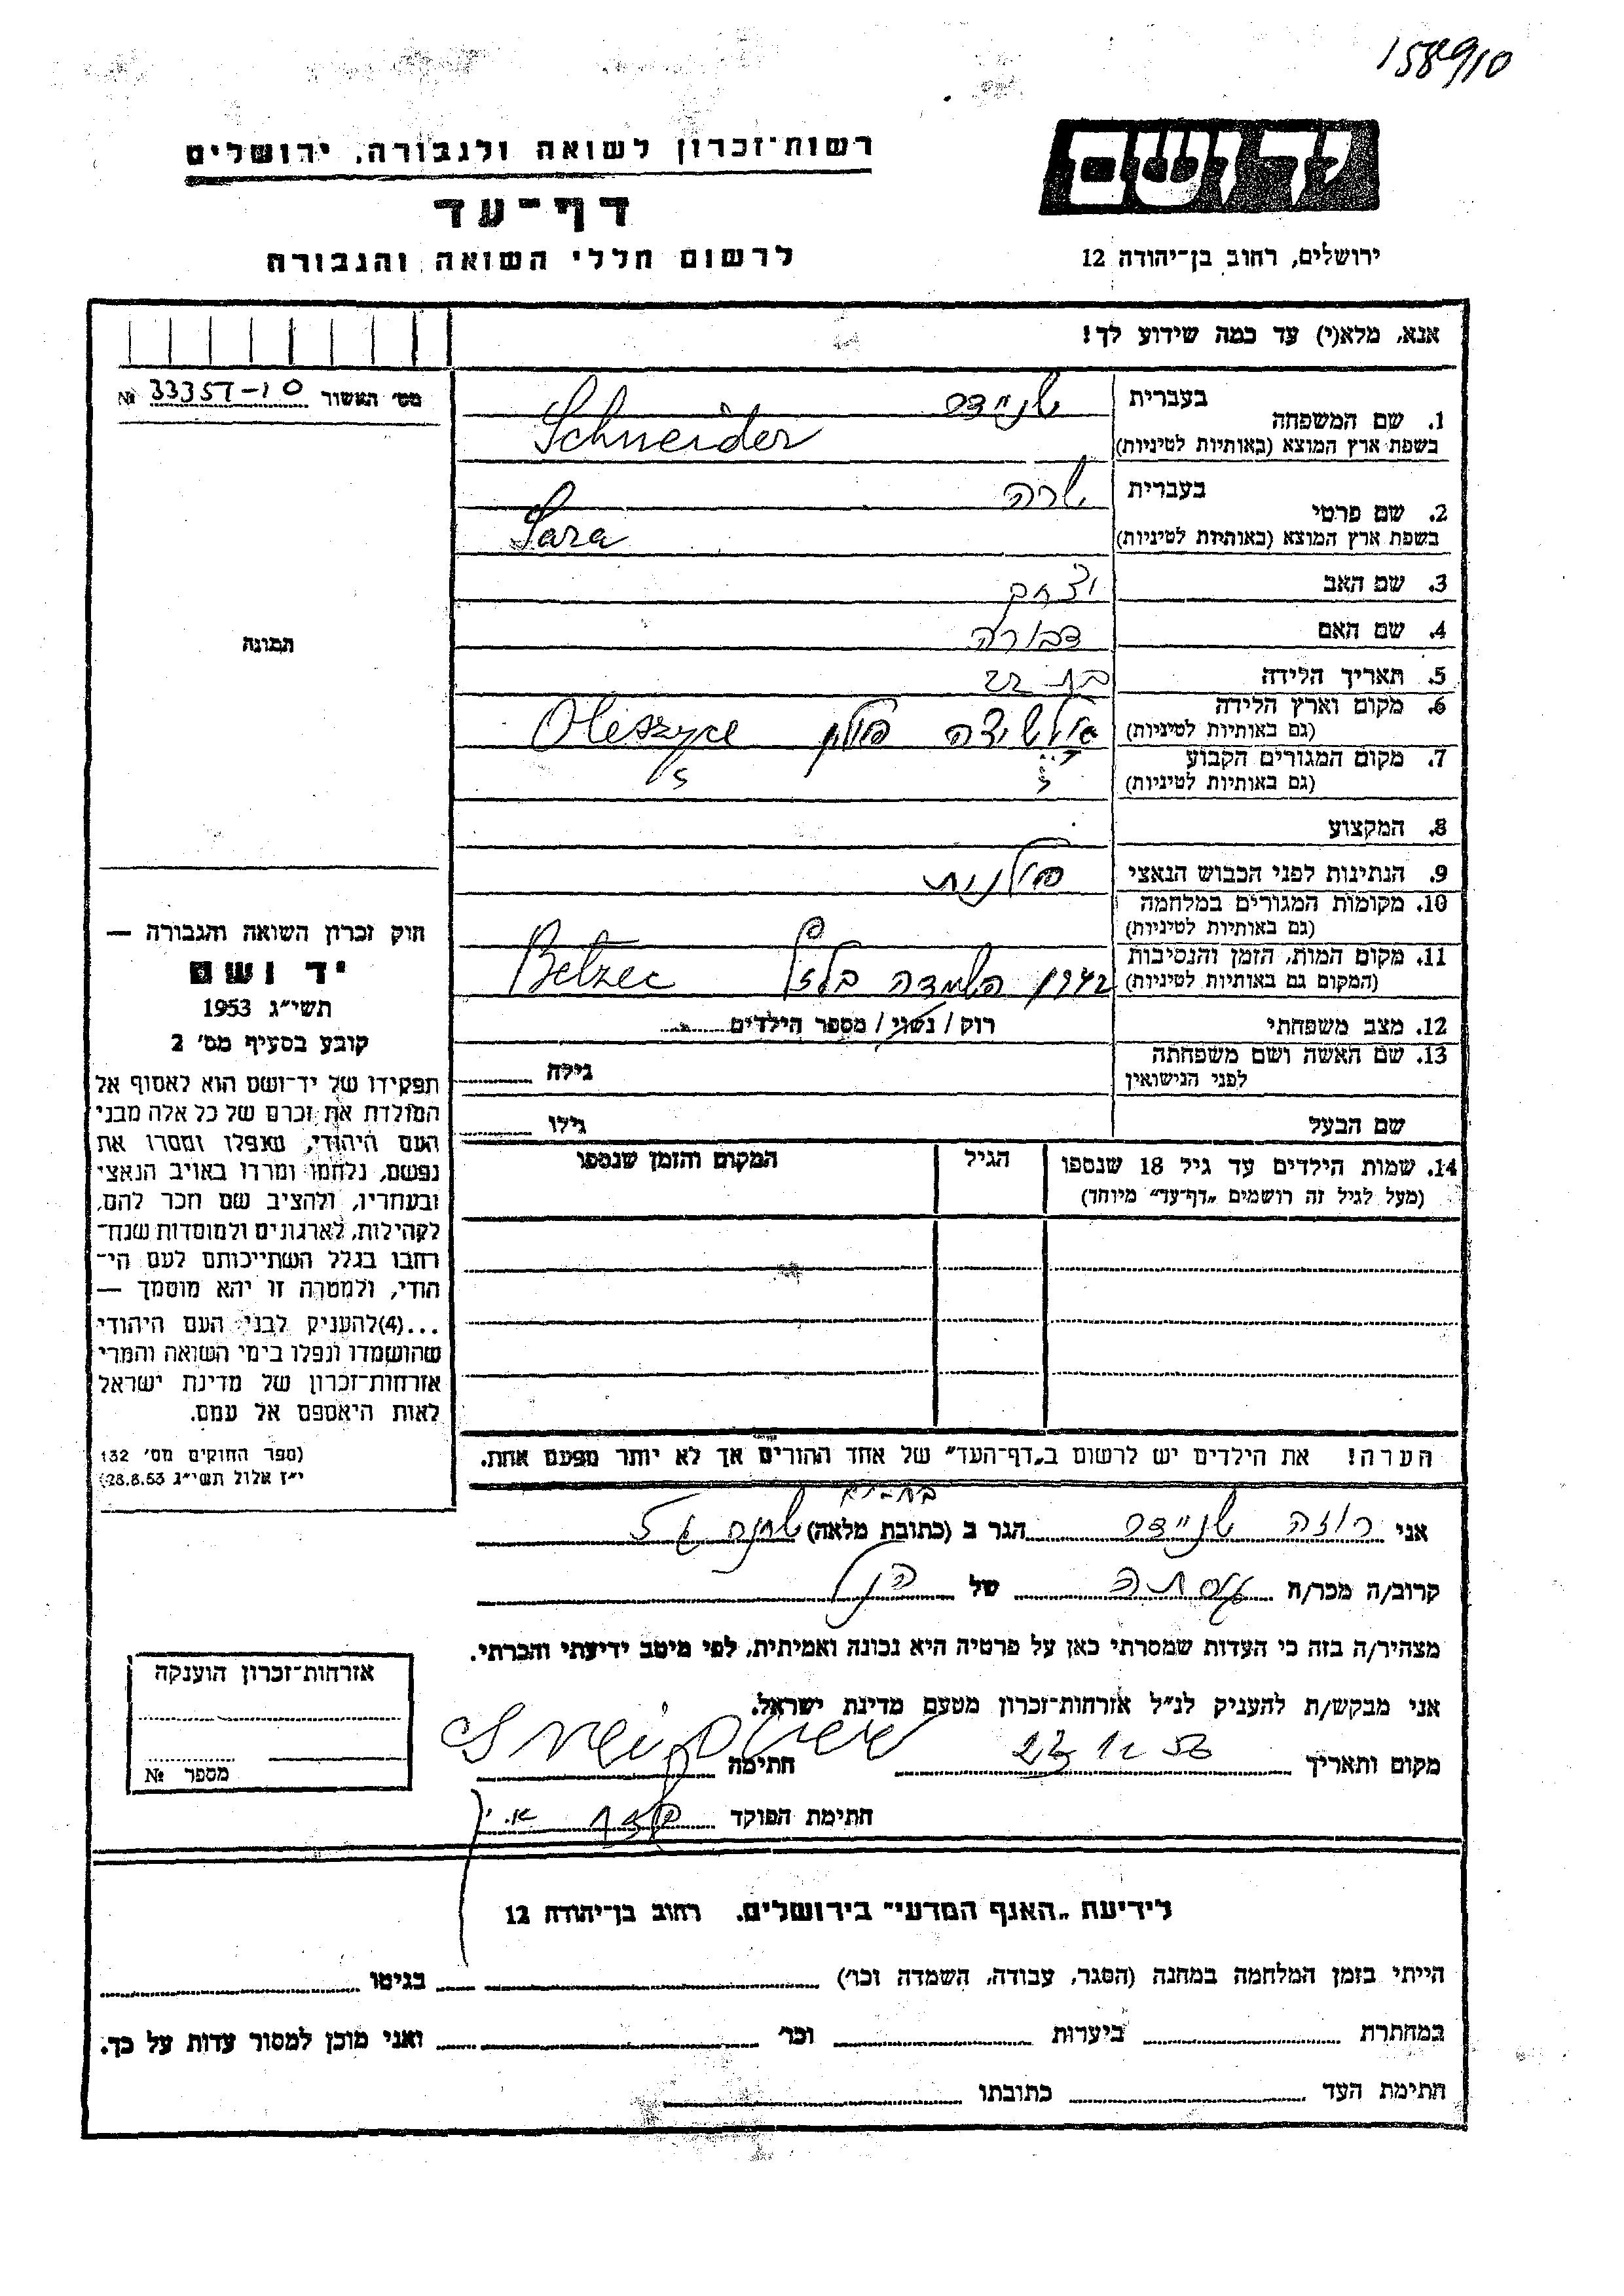 158910
רשות־זכרון לשואה ולגבורה, ירושלים
דף־עד
לרשום חללי השואה והגבורה
ידושם
ירושלים, רחוב בן־יהודה 12
אנא, מלא(י) עד כמה שידוע לך!
מס׳ האשור № 33357-10
תמונה
1. שם המשפחה
בעברית שניידר
בשפת ארץ המוצא (באותיות לטיניות) Schneider
2. שם פרטי
בעברית שרה
בשפת ארץ המוצא (באותיות לטיניות) Sara
3. שם האב יצחק
4. שם האם דבורה
5. תאריך הלידה בת 22
6. מקום וארץ הלידה
(גם באותיות לטיניות) אולשיצה פולין Oleszyce
7. מקום המגורים הקבוע
(גם באותיות לטיניות)
8. המקצוע
9. הנתינות לפני הכבוש הנאצי פולנית
10. מקומות המגורים במלחמה
(גם באותיות לטיניות)
11. מקום המות, הזמן והנסיבות
(המקום גם באותיות לטיניות) השמדה בלזץ Betzec
12. מצב משפחתי רוק / נשוי / מספר הילדים
13. שם האשה ושם משפחתה
לפני הנישואין גילה
שם הבעל גילו
14. שמות הילדים עד גיל 18 שנספו הגיל המקום והזמן שנספו
(מעל לגיל זה רושמים „דף־עד״ מיוחד)
הערה! את הילדים יש לרשום ב„דף־העד״ של אחד ההורים אך לא יותר מפעם אחת.
חוק זכרון השואה והגבורה —
יד ושם
תשי״ג 1953
קובע בסעיף מס׳ 2
תפקידו של יד־ושם הוא לאסוף אל
המולדת את זכרם של כל אלה מבני
העם היהודי, שנפלו ומסרו את
נפשם, נלחמו ומרדו באויב הנאצי
ובעוזריו, ולהציב שם וזכר להם,
לקהילות, לארגונים ולמוסדות שנח־
רבו בגלל השתייכותם לעם הי־
הודי, ולמטרה זו יהא מוסמך —
...(4)להעניק לבני העם היהודי
שהושמדו ונפלו בימי השואה והמרי
אזרחות־זכרון של מדינת ישראל
לאות היאספם אל עמם.
(ספר החוקים מס׳ 132
י״ז אלול תשי״ג 28.8.53)
בת-ים
אני רוזה שניידר הגר ב (כתובת מלאה)
קרוב/ה מכר/ה של הנ״ל
מצהיר/ה בזה כי העדות שמסרתי כאן על פרטיה היא נכונה ואמיתית, לפי מיטב ידיעתי והכרתי.
אני מבקש/ת להעניק לנ״ל אזרחות־זכרון מטעם מדינת ישראל.
מקום ותאריך 23 12 56 חתימה
חתימת הפוקד
אזרחות־זכרון הוענקה
מספר №
לידיעת „האגף המדעי״ בירושלים, רחוב בן־יהודה 12
הייתי בזמן המלחמה במחנה (הסגר, עבודה, השמדה וכו׳) בגיטו
במחתרת ביערות וכו׳ ואני מוכן למסור עדות על כך.
חתימת העד כתובתו